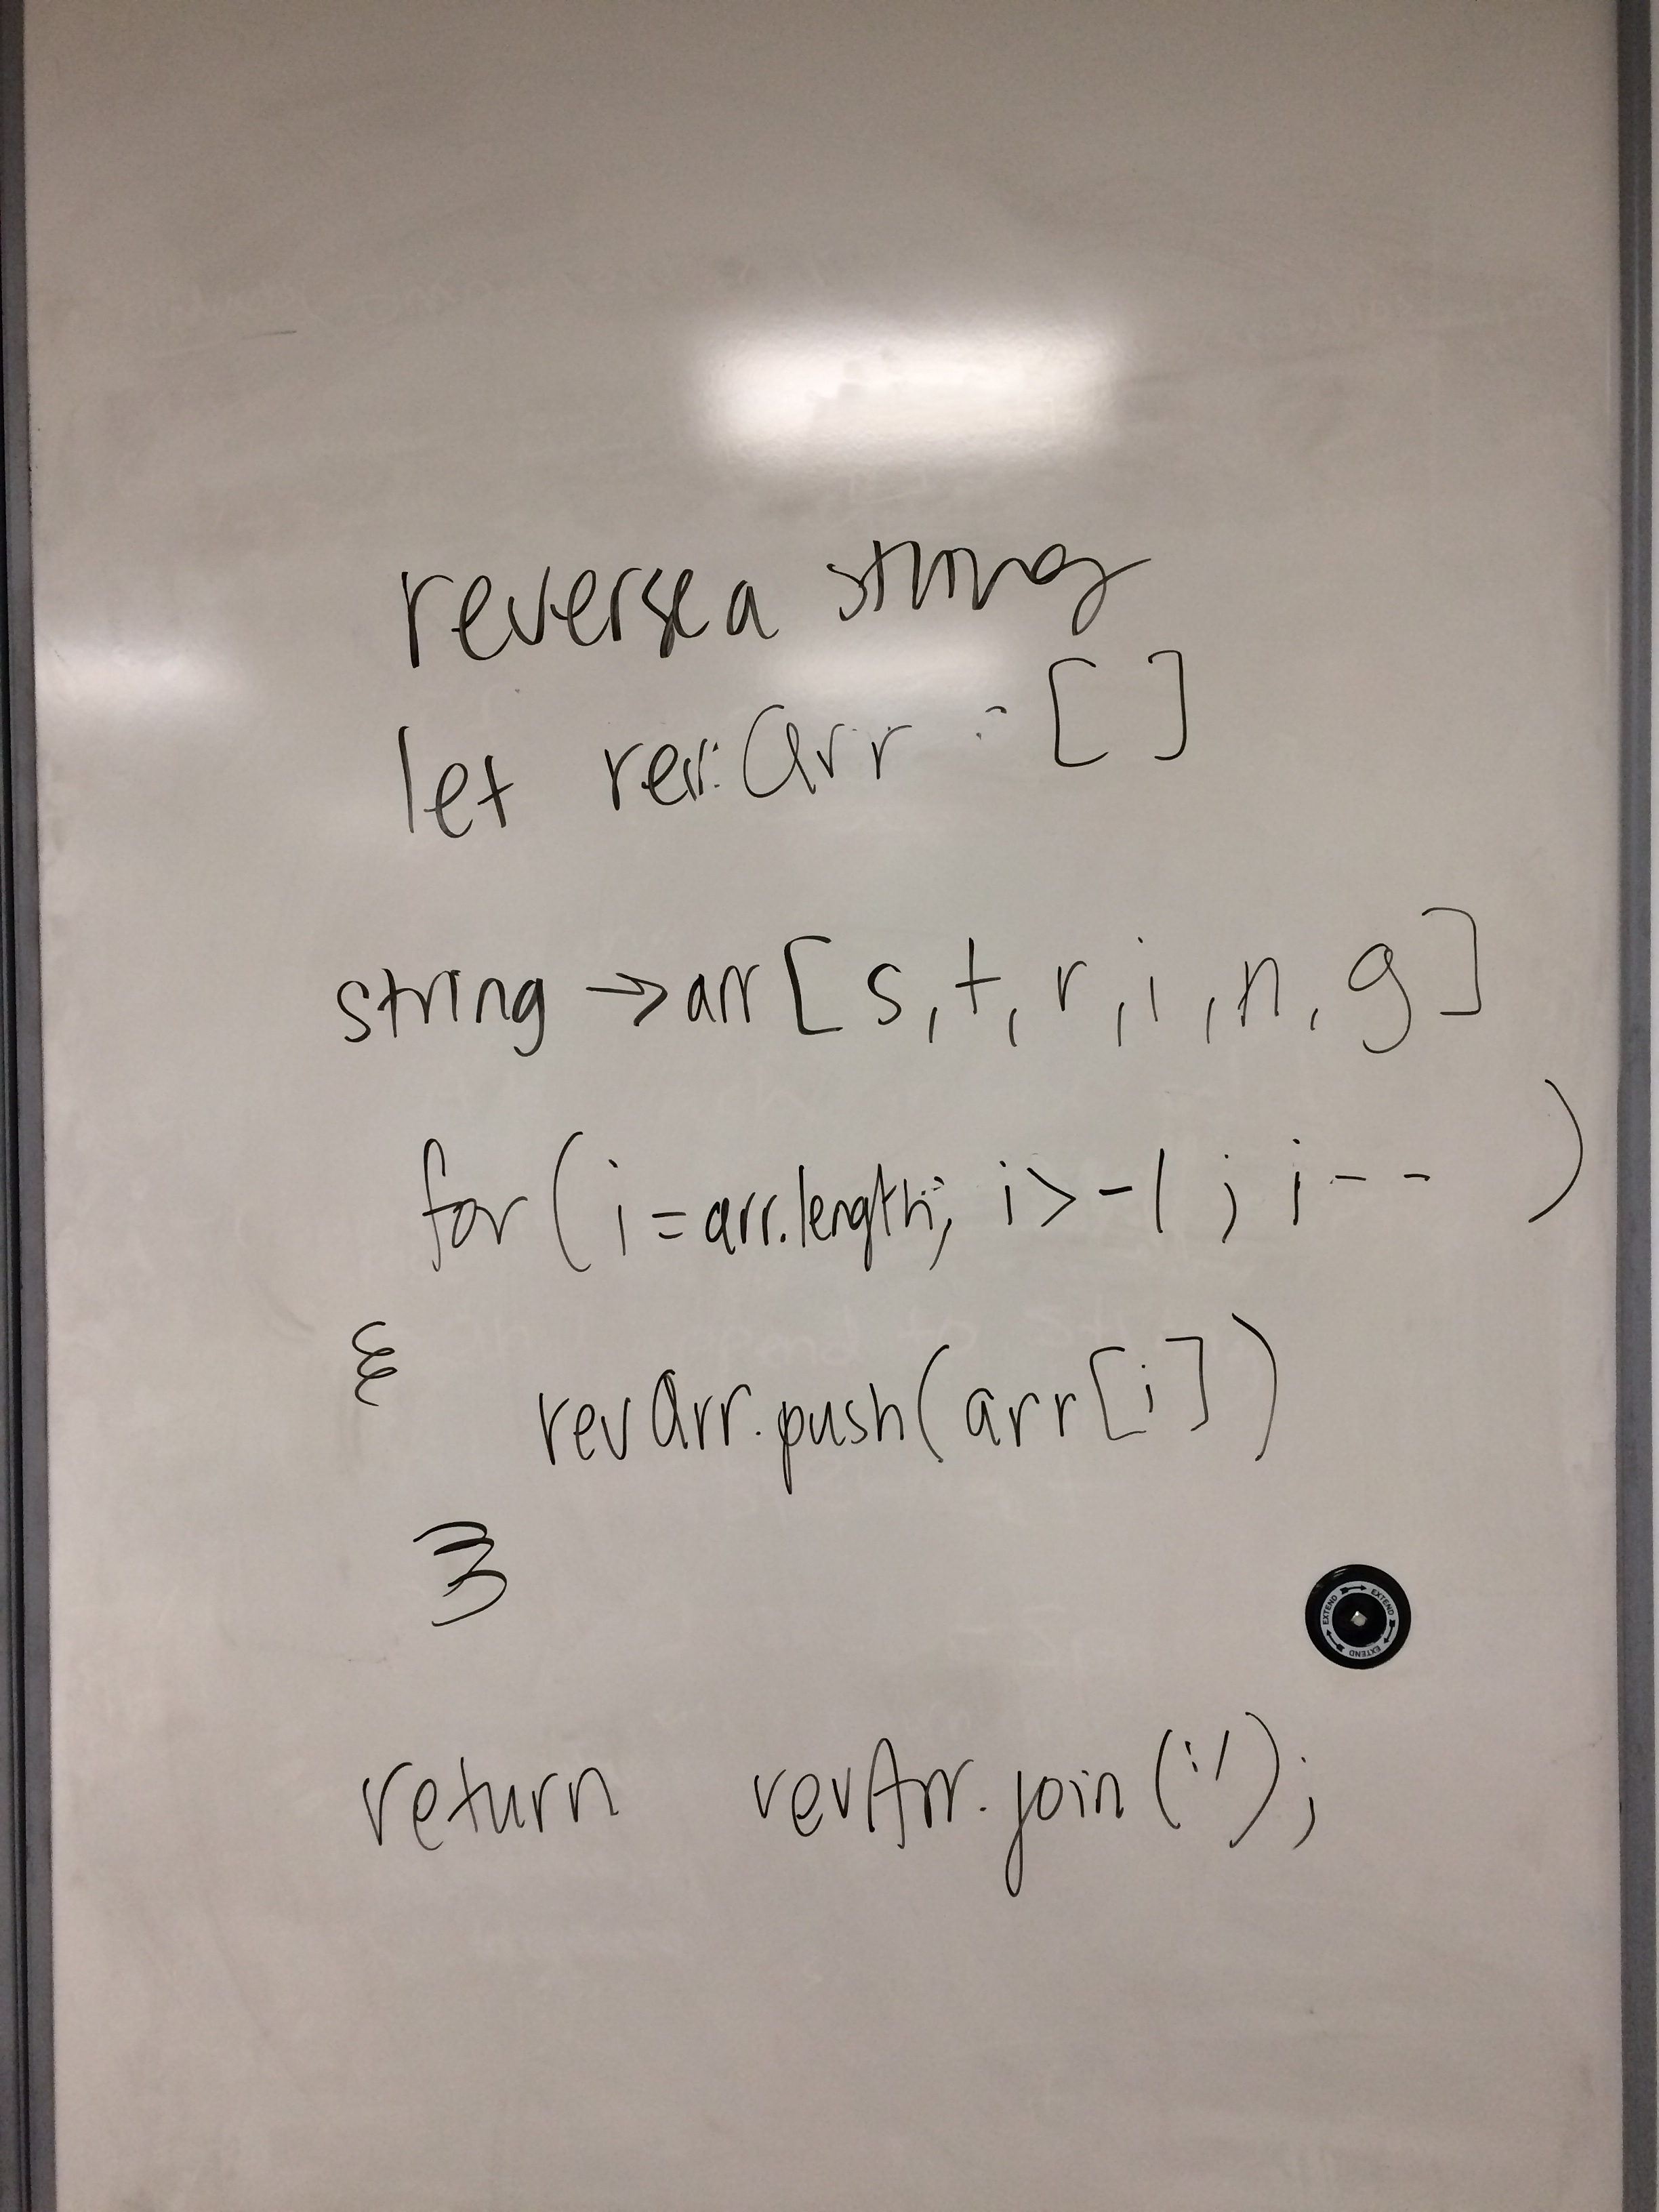 reverse a string
let revArr = []
string → arr [s, t, r, i, n, g]
for (i = arr.length; i > -1 ; i--)
{
revArr.push(arr[i])
}
EXTEND EXTEND EXTEND EXTEND
return revArr.join('');